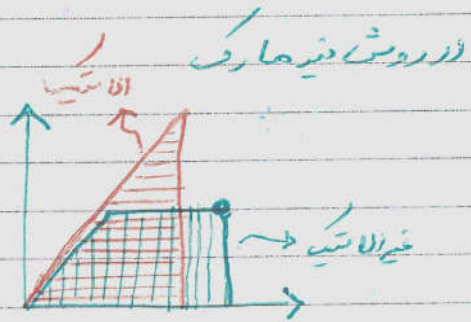 از روش نیومارک
الاستیک
غیرالاستیک